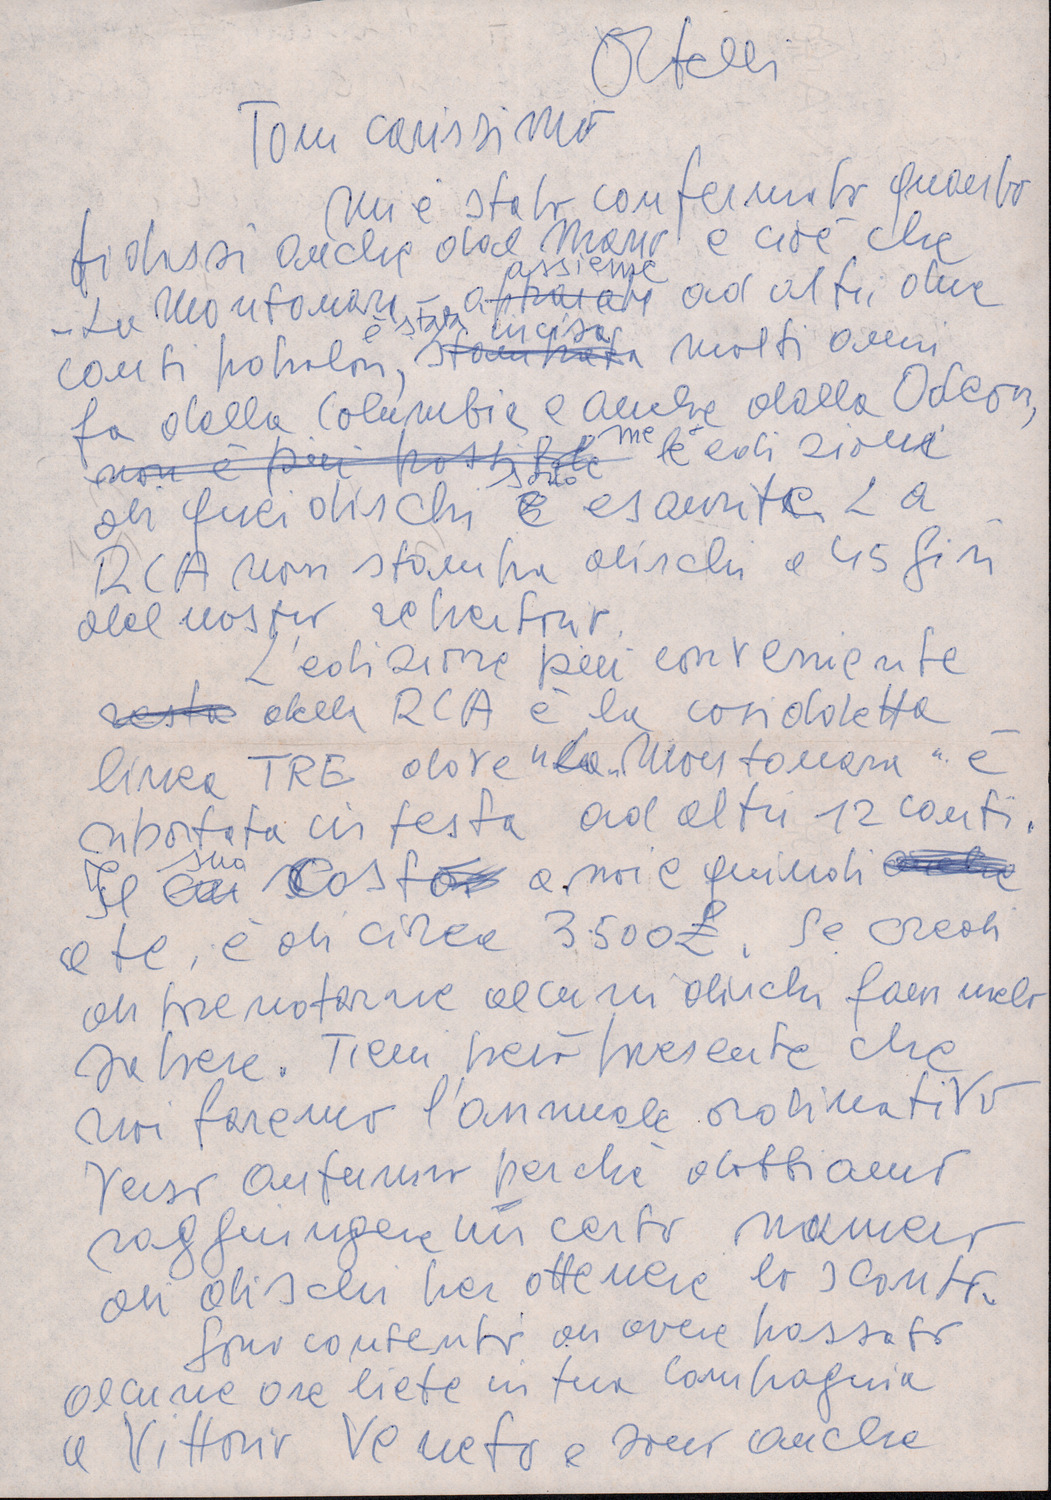 Ortelli
Toni carissimo
Mi è stato confermato quanto
ti dissi anche dal Mauro e cioè che
assieme
- La Montanara - ad altri due
è stata incisa
canti popolari, stampata molti anni
fa dalla Columbia e anche dalla Odeon,
non è più possibile ma le edizioni
sono
di quei dischi è esaurite. La
RCA non stampa dischi a 45 giri
del nostro repertorio.
L'edizione più conveniente
resta della RCA è la cosiddetta
linea TRE dove "La Montanara" è
riportata in testa ad altri 12 canti.
suo
Il costo a noi e quindi anche
a te, è di circa 3.500 £. Se credi
di prenotarne alcuni dischi fammelo
sapere. Tieni però presente che
noi faremo l'annuale ordinativo
verso autunno perché dobbiamo
raggiungere un certo numero
di dischi per ottenere lo sconto.
Sono contento di avere passato
alcune ore liete in tua compagnia
a Vittorio Veneto e sono anche